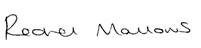 Rachel Mallows